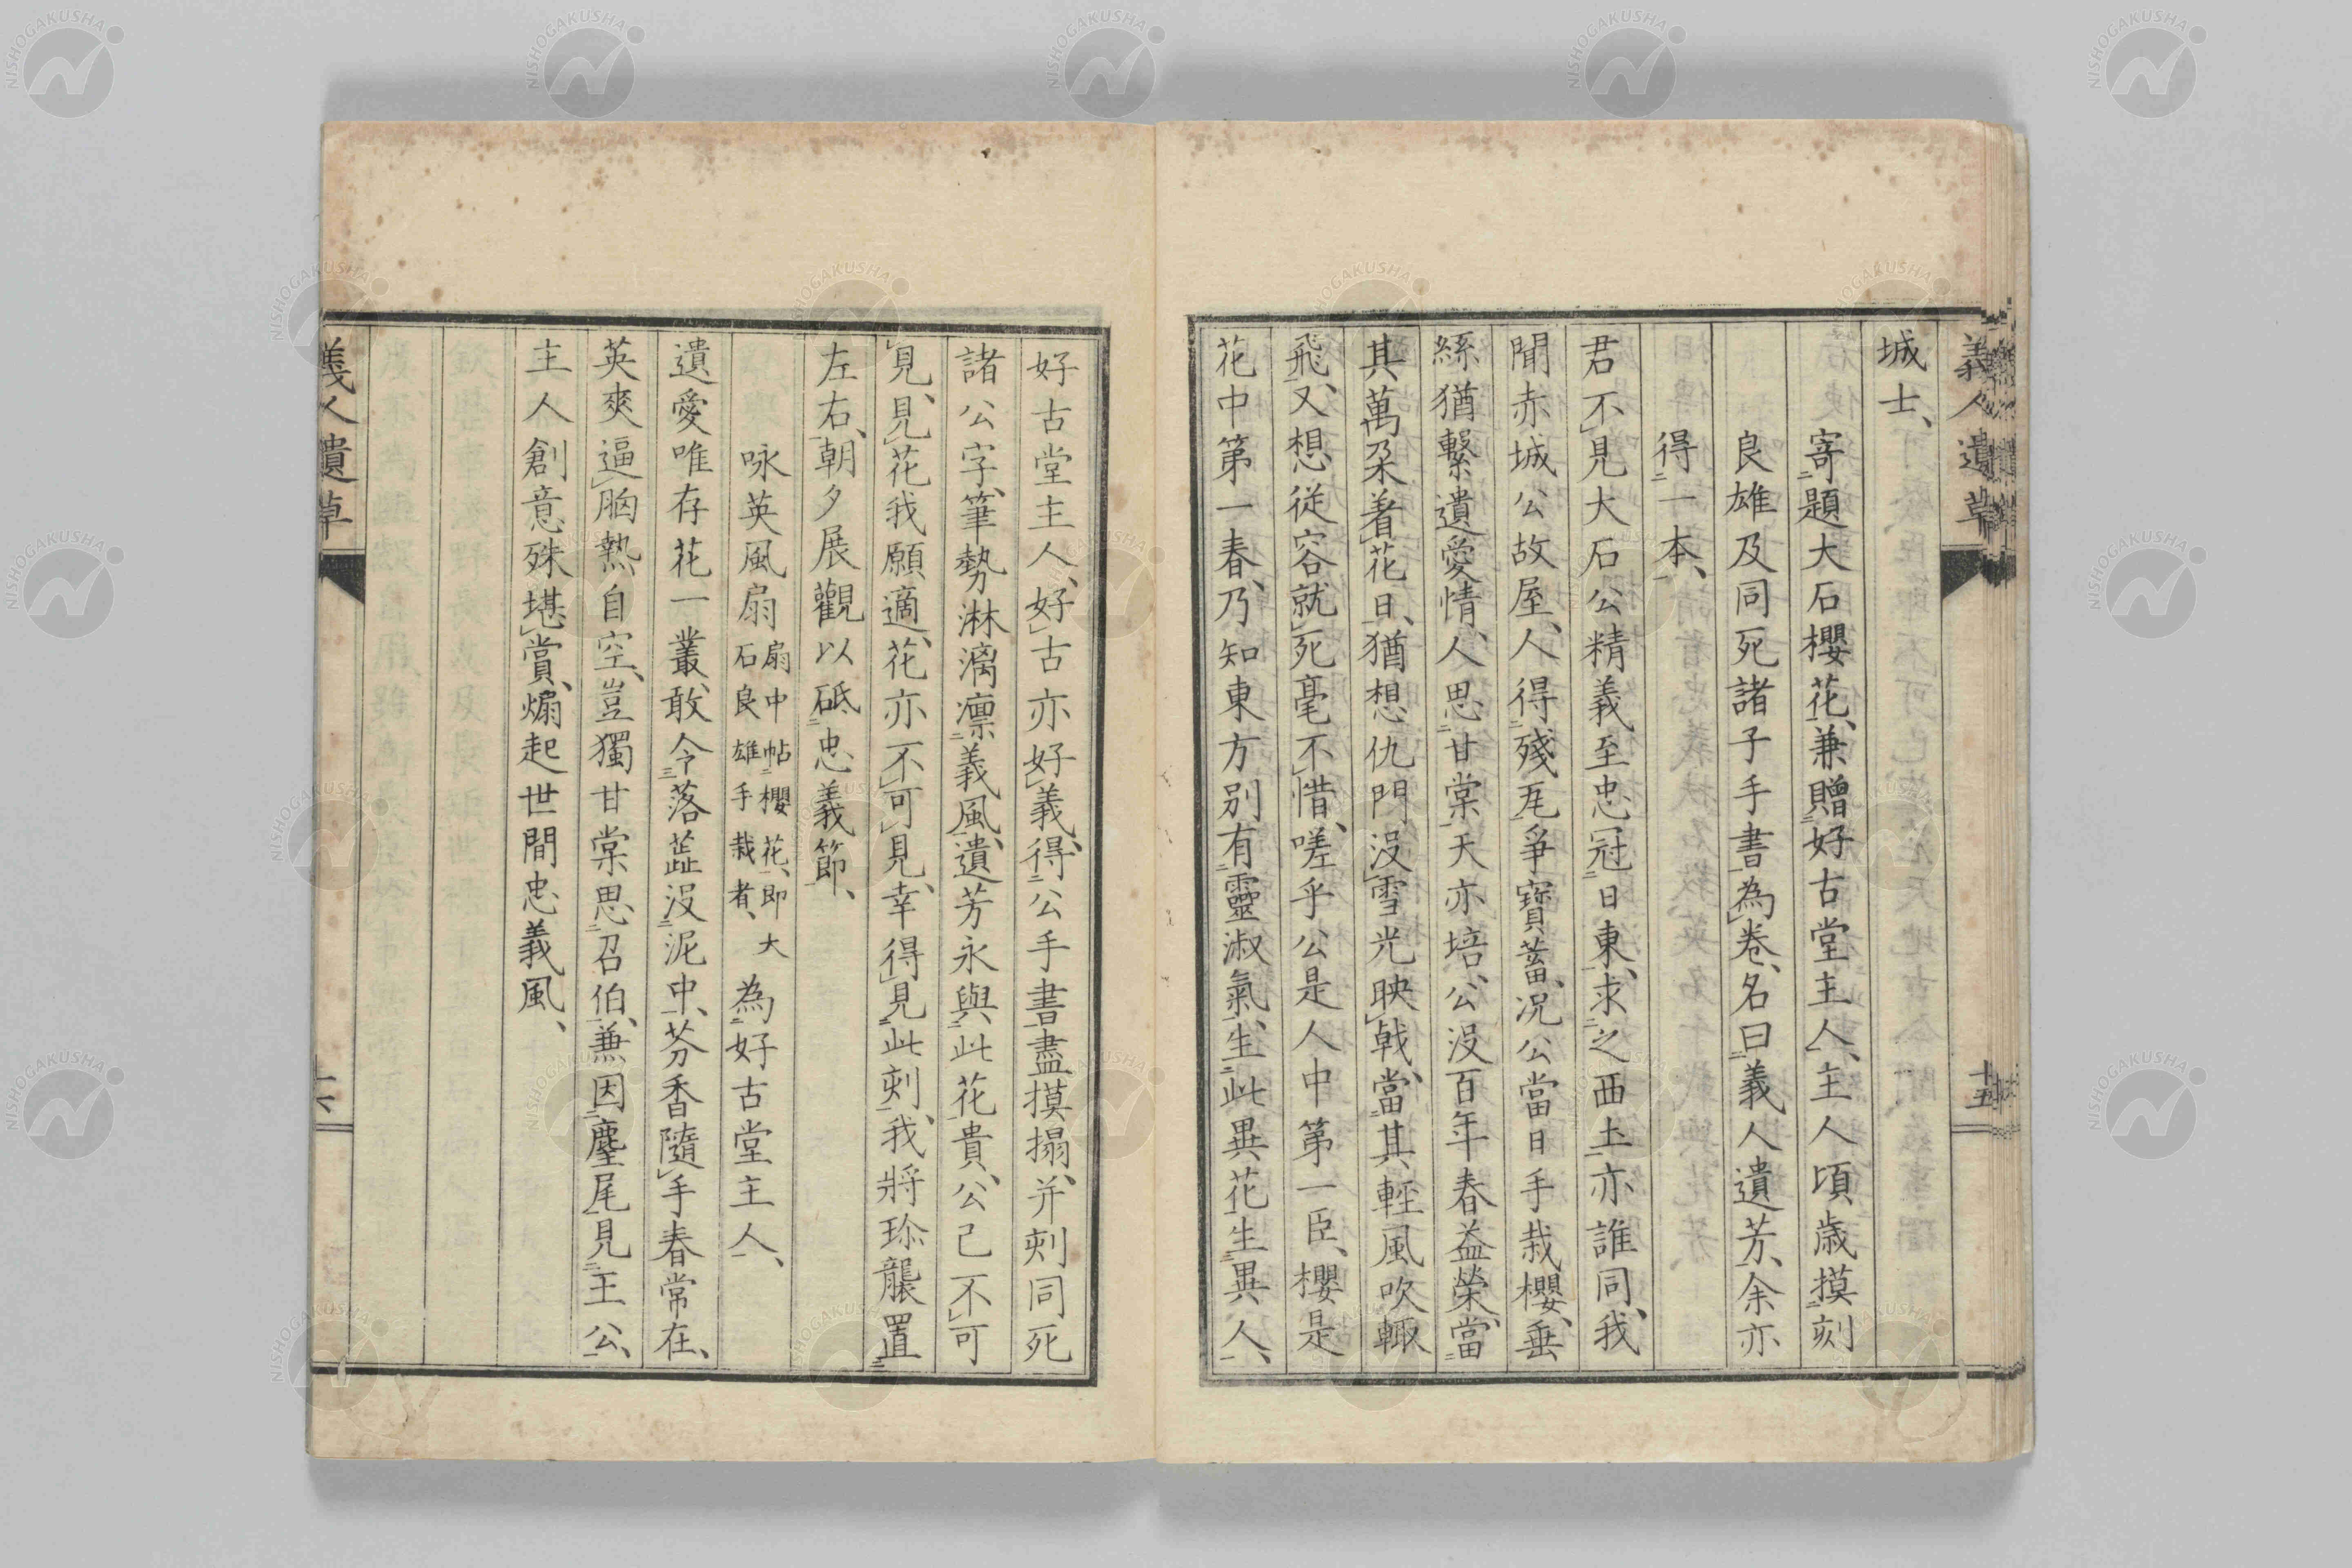 義人遺草
十五
城士、
寄題大石櫻花、兼贈好古堂主人、主人頃歳摸刻
良雄及同死諸子手書為卷、名曰義人遺芳、余亦
得一本、
君不見大石公精義至忠冠日東、求之西土亦誰同、我
聞赤城公故屋、人得殘瓦爭寶蓄、况公當日手栽櫻、垂
絲猶繫遺愛情、人思甘棠天亦培、公沒百年春益榮、當
其萬朶着花日、猶想仇門沒雪光映戟、當其輕風吹輙
飛、又想從容就死毫不惜、嗟乎公是人中第一臣、櫻是
花中第一春、乃知東方別有靈淑氣、生此異花生異人、
好古堂主人、好古亦好義、得公手書盡摸搨、并刻同死
諸公字、筆勢淋漓凛義風、遺芳永與此花貴、公已不可
見、見花我願適、花亦不可見、幸得見此刻、我將珎襲置
左右、朝夕展觀以砥忠義節、
咏英風扇 扇中帖櫻花、即大石良雄手栽者、 為好古堂主人、
遺愛唯存花一叢、敢令落蕋沒泥中、芬香隨手春常在、
英爽逼胸熱自空、豈獨甘棠思召伯、兼因麈尾見王公、
主人創意殊堪賞、煽起世間忠義風、
義人遺草
十六